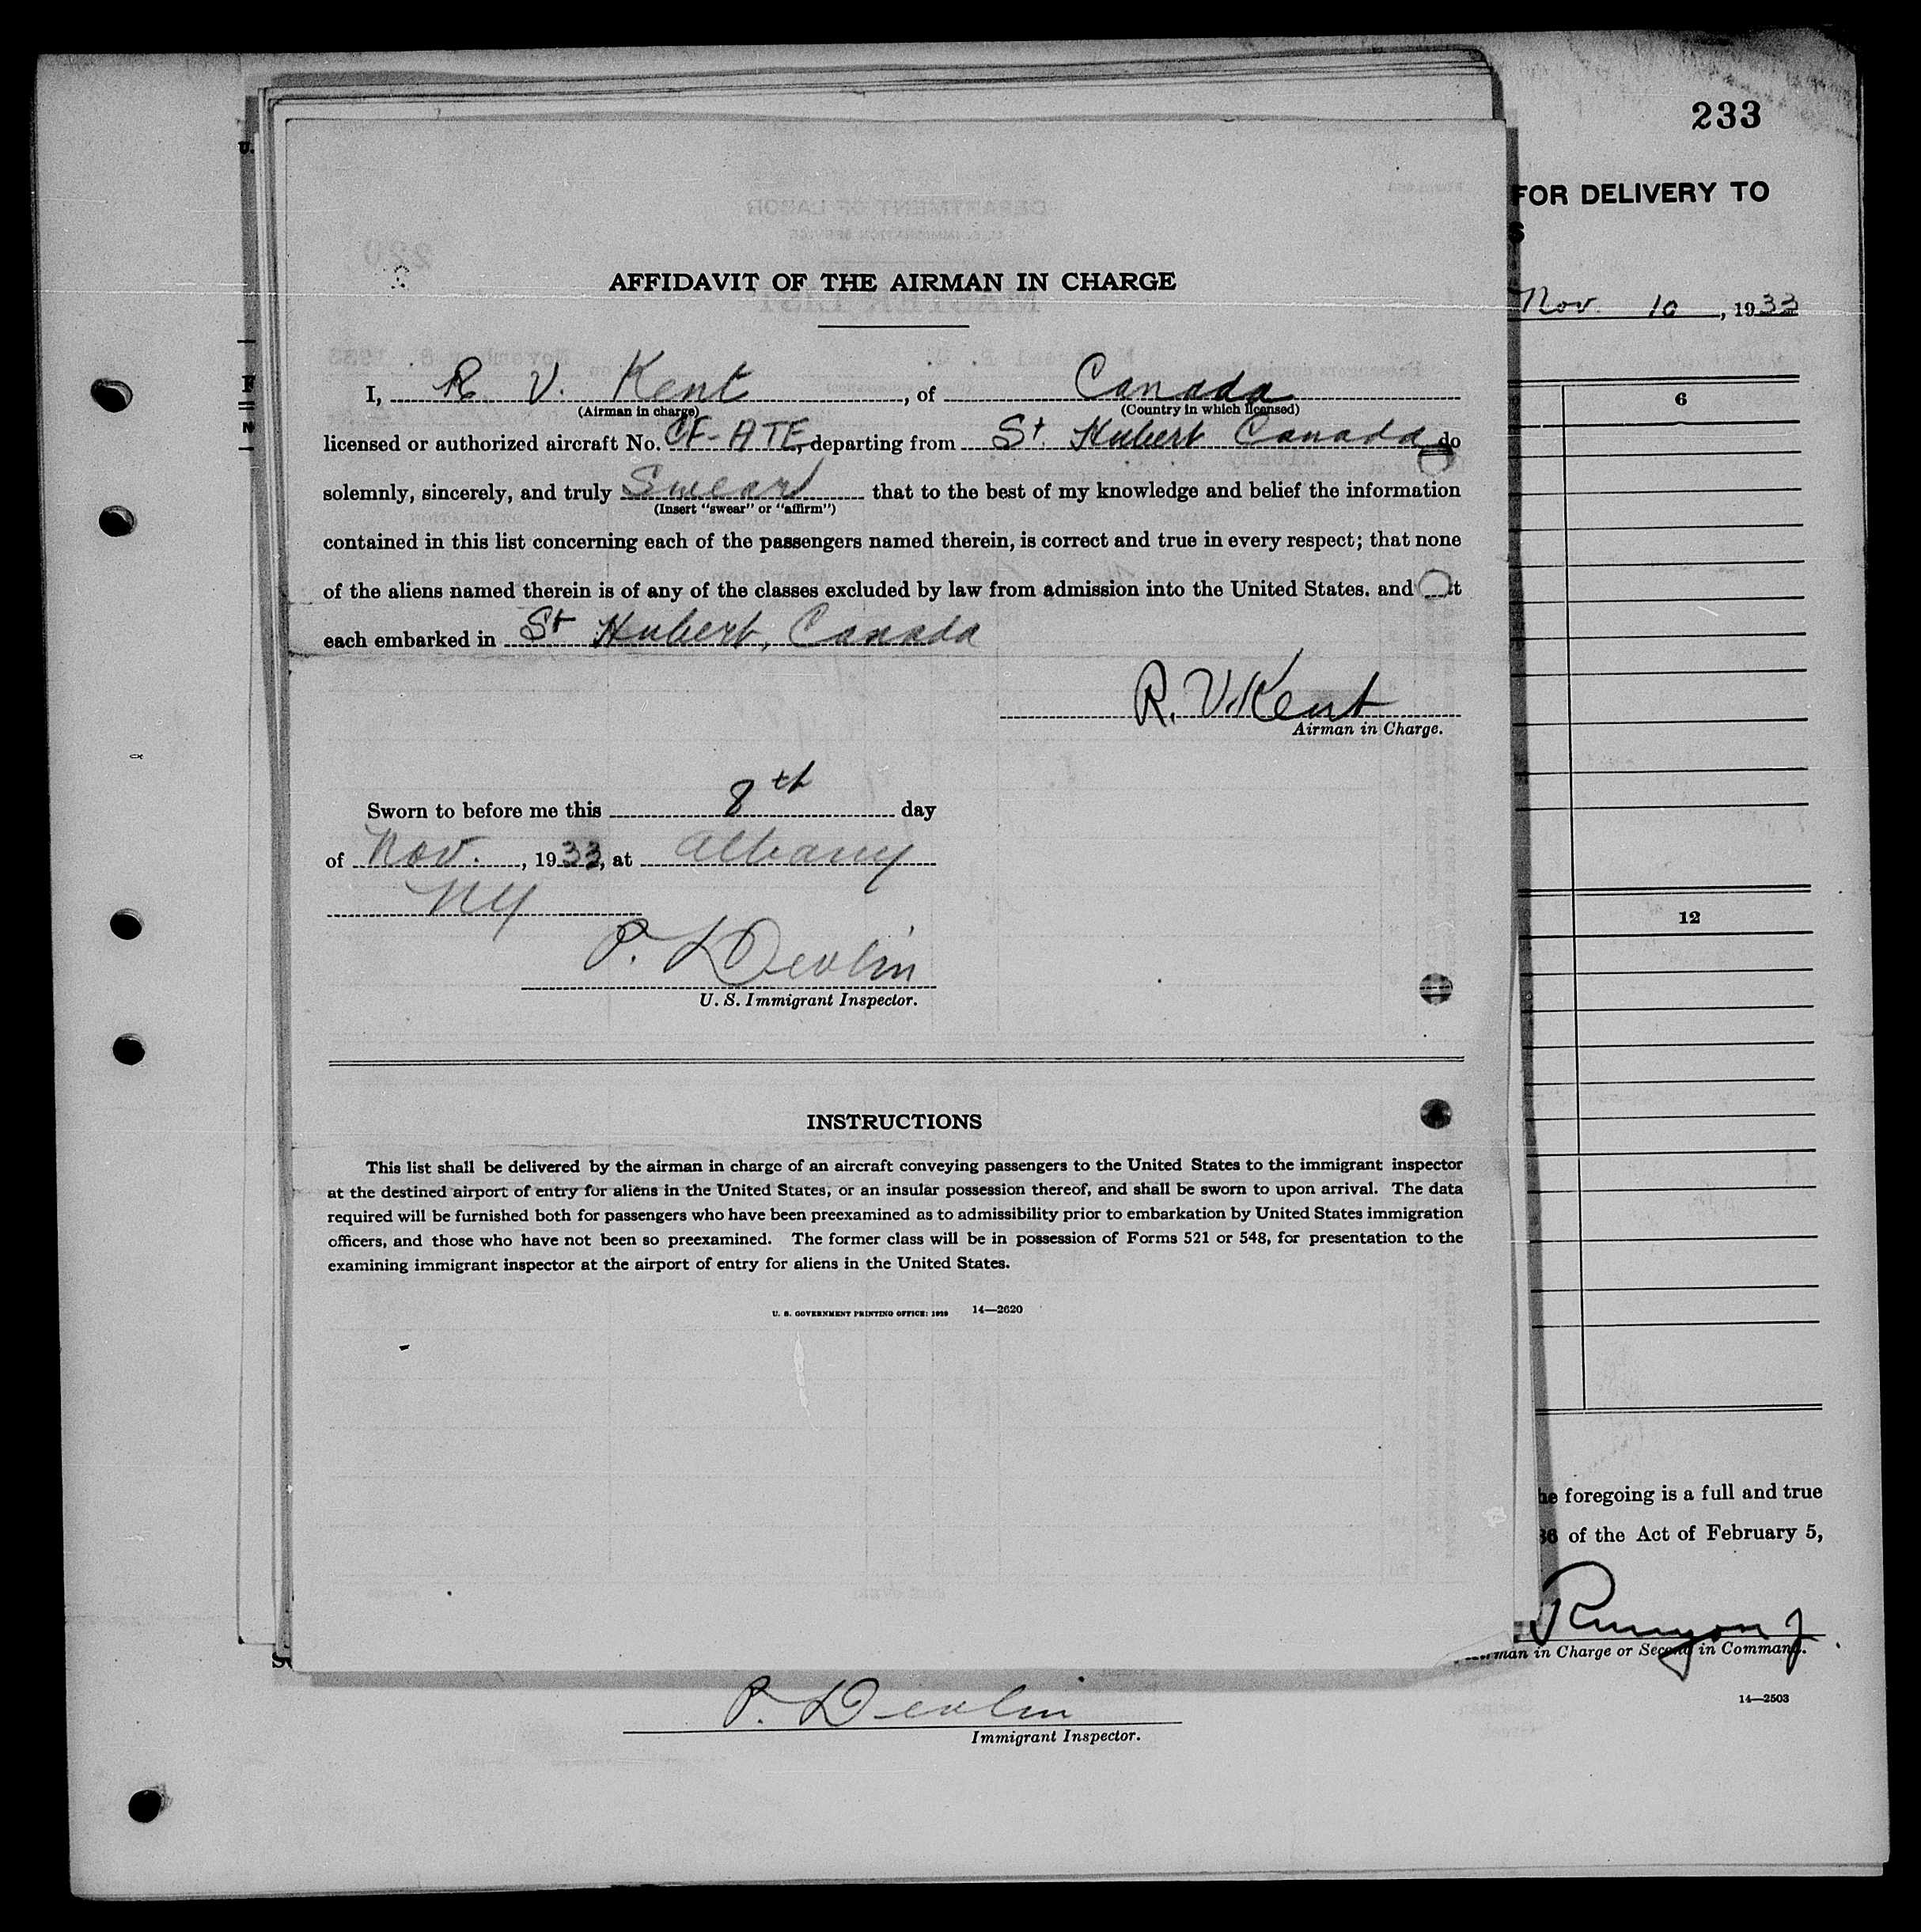 233
FOR DELIVERY TO
S
Nov. 10, 1933
6
AFFIDAVIT OF THE AIRMAN IN CHARGE
I, R. V. Kent, of Canada
(Airman in charge) (Country in which licensed)
licensed or authorized aircraft No. CF-ATE, departing from St. Hubert Canada do
solemnly, sincerely, and truly Swear that to the best of my knowledge and belief the information
(Insert "swear" or "affirm")
contained in this list concerning each of the passengers named therein, is correct and true in every respect; that none
of the aliens named therein is of any of the classes excluded by law from admission into the United States. and
each embarked in St Hubert, Canada
R. V. Kent
Airman in Charge.
Sworn to before me this 8th day
of Nov., 1933, at Albany
NY
P. Devlin
U. S. Immigrant Inspector.
12
INSTRUCTIONS
This list shall be delivered by the airman in charge of an aircraft conveying passengers to the United States to the immigrant inspector
at the destined airport of entry for aliens in the United States, or an insular possession thereof, and shall be sworn to upon arrival. The data
required will be furnished both for passengers who have been preexamined as to admissibility prior to embarkation by United States immigration
officers, and those who have not been so preexamined. The former class will be in possession of Forms 521 or 548, for presentation to the
examining immigrant inspector at the airport of entry for aliens in the United States.
U. S. GOVERNMENT PRINTING OFFICE: 1929 14—2620
he foregoing is a full and true
36 of the Act of February 5,
Runyon J
man in Charge or Second in Command.
14—2503
P. Devlin
Immigrant Inspector.